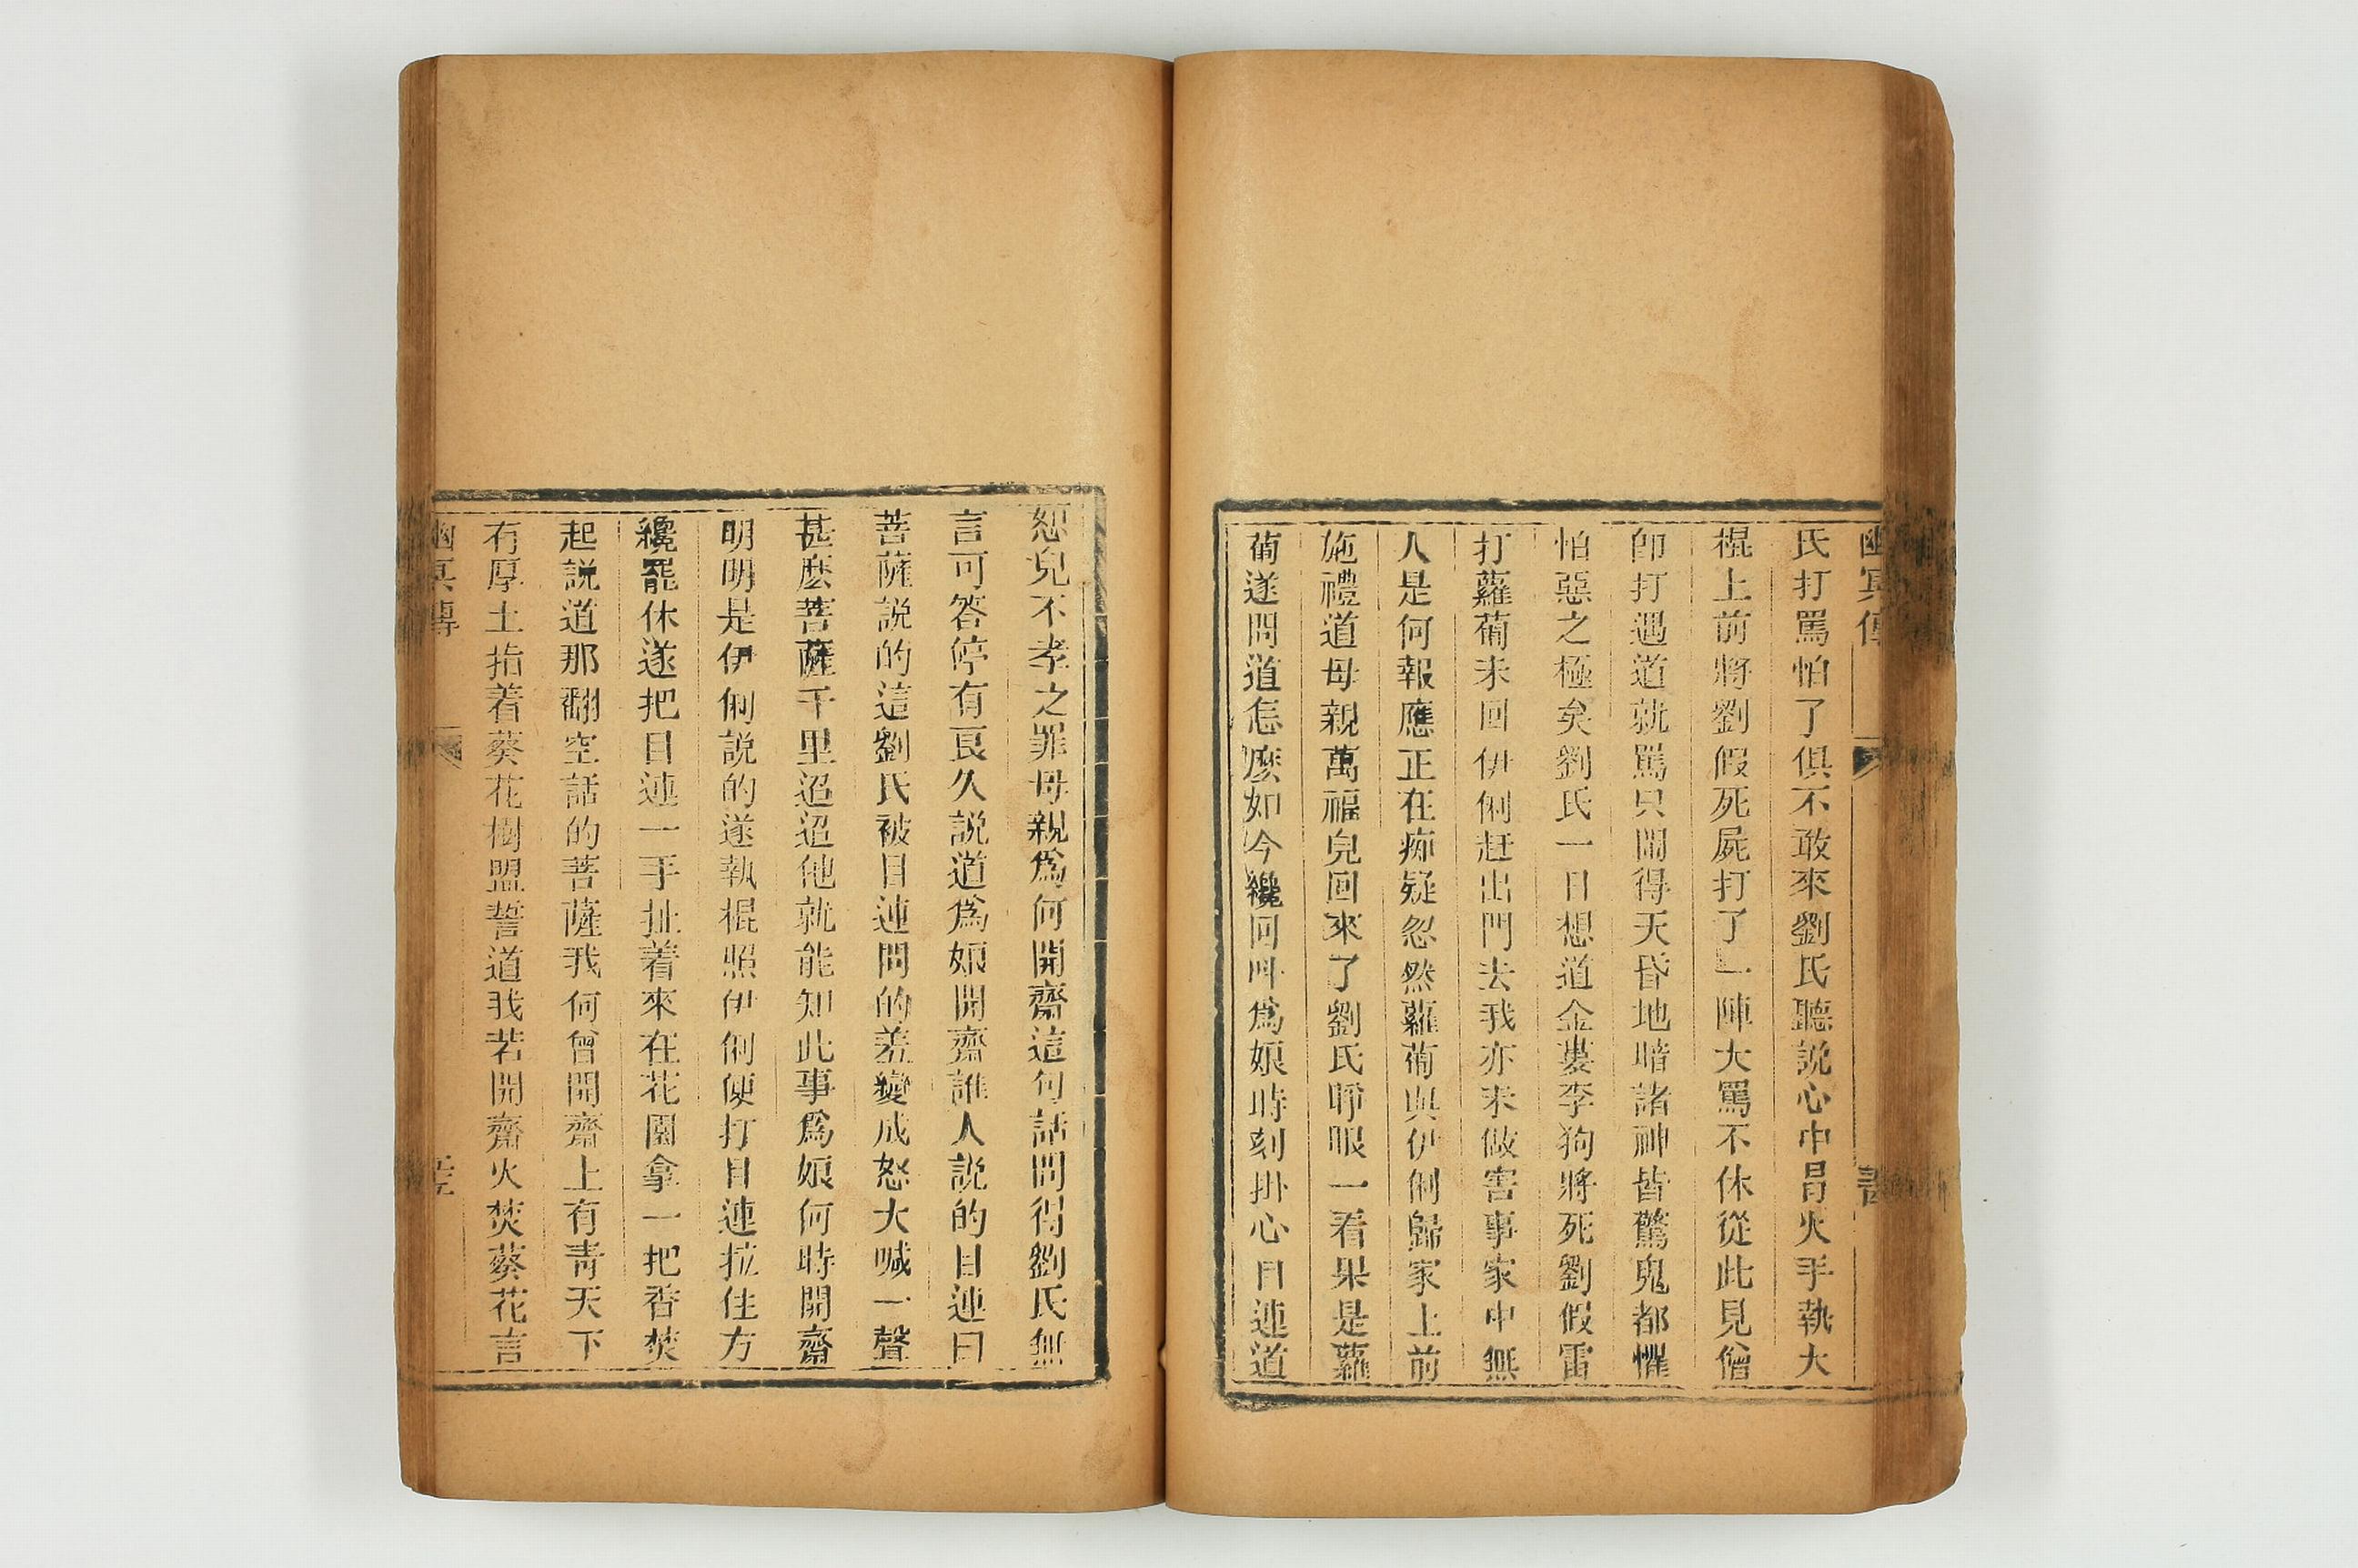 幽冥傳
氏打罵怕了俱不敢來劉氏聽說心中昌火手執大
棍上前將劉假死屍打了一陣大罵不休從此見僧
卽打遇道就罵只閙得天昏地暗諸神皆驚鬼都懼
怕惡之極矣劉氏一日想道金婁李狗將死劉假雷
打蘿蔔未回伊俐赶出門去我亦未做害事家中無
人是何報應正在痴疑忽然蘿蔔與伊俐歸家上前
施禮道母親萬福兒回來了劉氏睜眼一看果是蘿
蔔遂問道怎麽如今纔回叫爲娘時刻掛心目連道
恕兒不孝之罪母親爲何開齋這句話問得劉氏無
言可答停有良久説道爲娘開齋誰人説的目連曰
菩薩説的這劉氏被目連問的羞變成怒大喊一聲
甚麽菩薩千里迢迢他就能知此事爲娘何時開齋
明明是伊俐説的遂執棍照伊俐便打目連拉住方
纔罷休遂把目連一手扯着來在花園拿一把香焚
起説道那翻空話的菩薩我何曾開齋上有靑天下
有厚土指着葵花樹盟誓道我若開齋火焚葵花言
幽冥傳